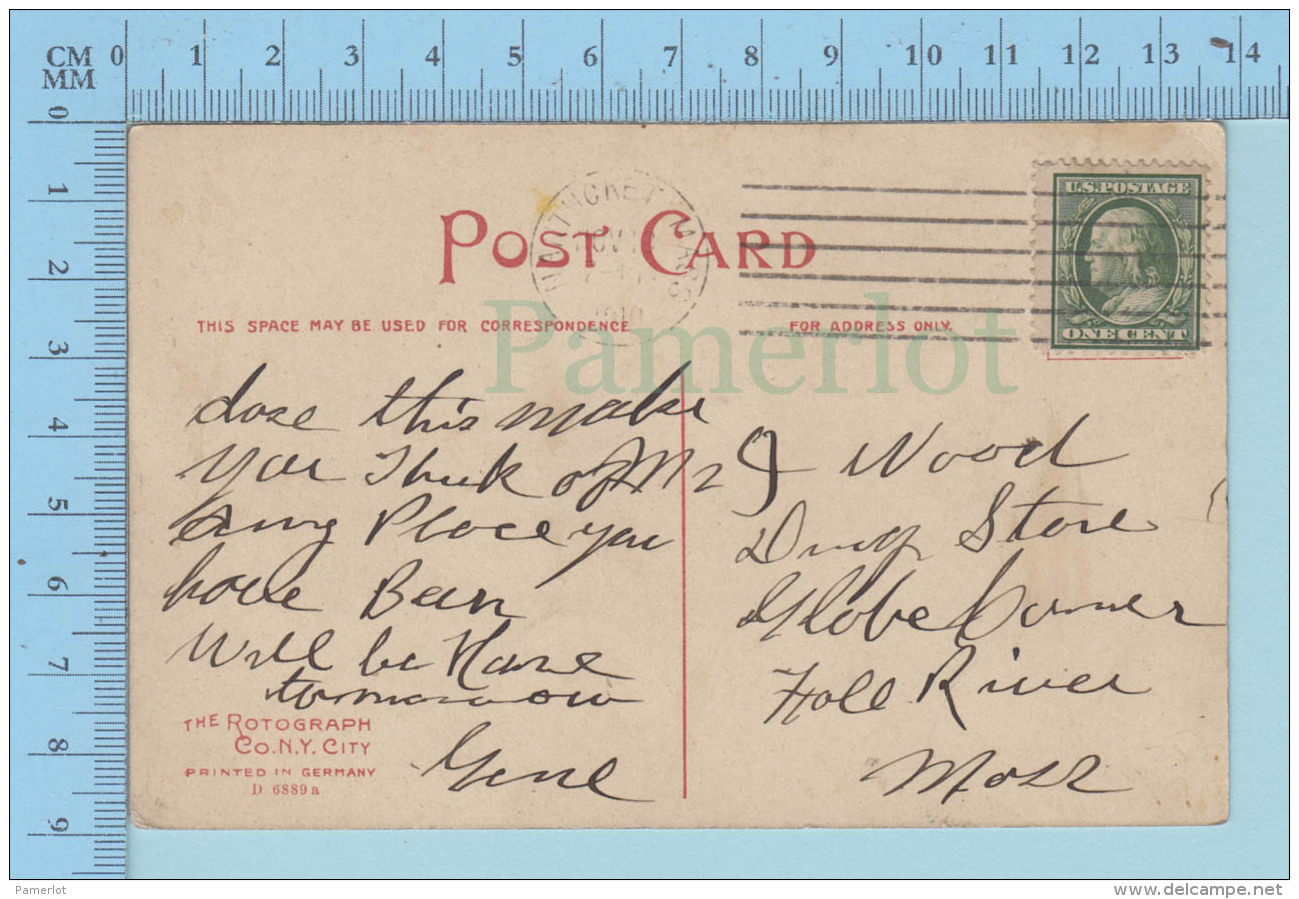 CM 0 1 2 3 4 5 6 7 8 9 10 11 12 13 14
MM
0 1 2 3 4 5 6 7 8 9
NANTUCKET MASS
NOV
1910
U.S. POSTAGE
ONE CENT
POST CARD
THIS SPACE MAY BE USED FOR CORRESPONDENCE
FOR ADDRESS ONLY.
Pamerlot
dose this make
you Think of
any Place you
have Been
Will be Home
tomorrow
Gene
J Wood
Drug Store
Globe Corner
Fall River
Mass
THE ROTOGRAPH
CO. N.Y. CITY
PRINTED IN GERMANY
D 6889 a
Pamerlot
www.delcampe.net